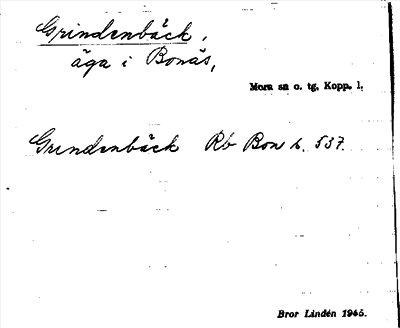 Grindenbäck,
äga i Bonäs,
Mora sn o. tg, Kopp. l.
Grendenbäck Rb Bon h. 537.
Bror Lindén 1945.